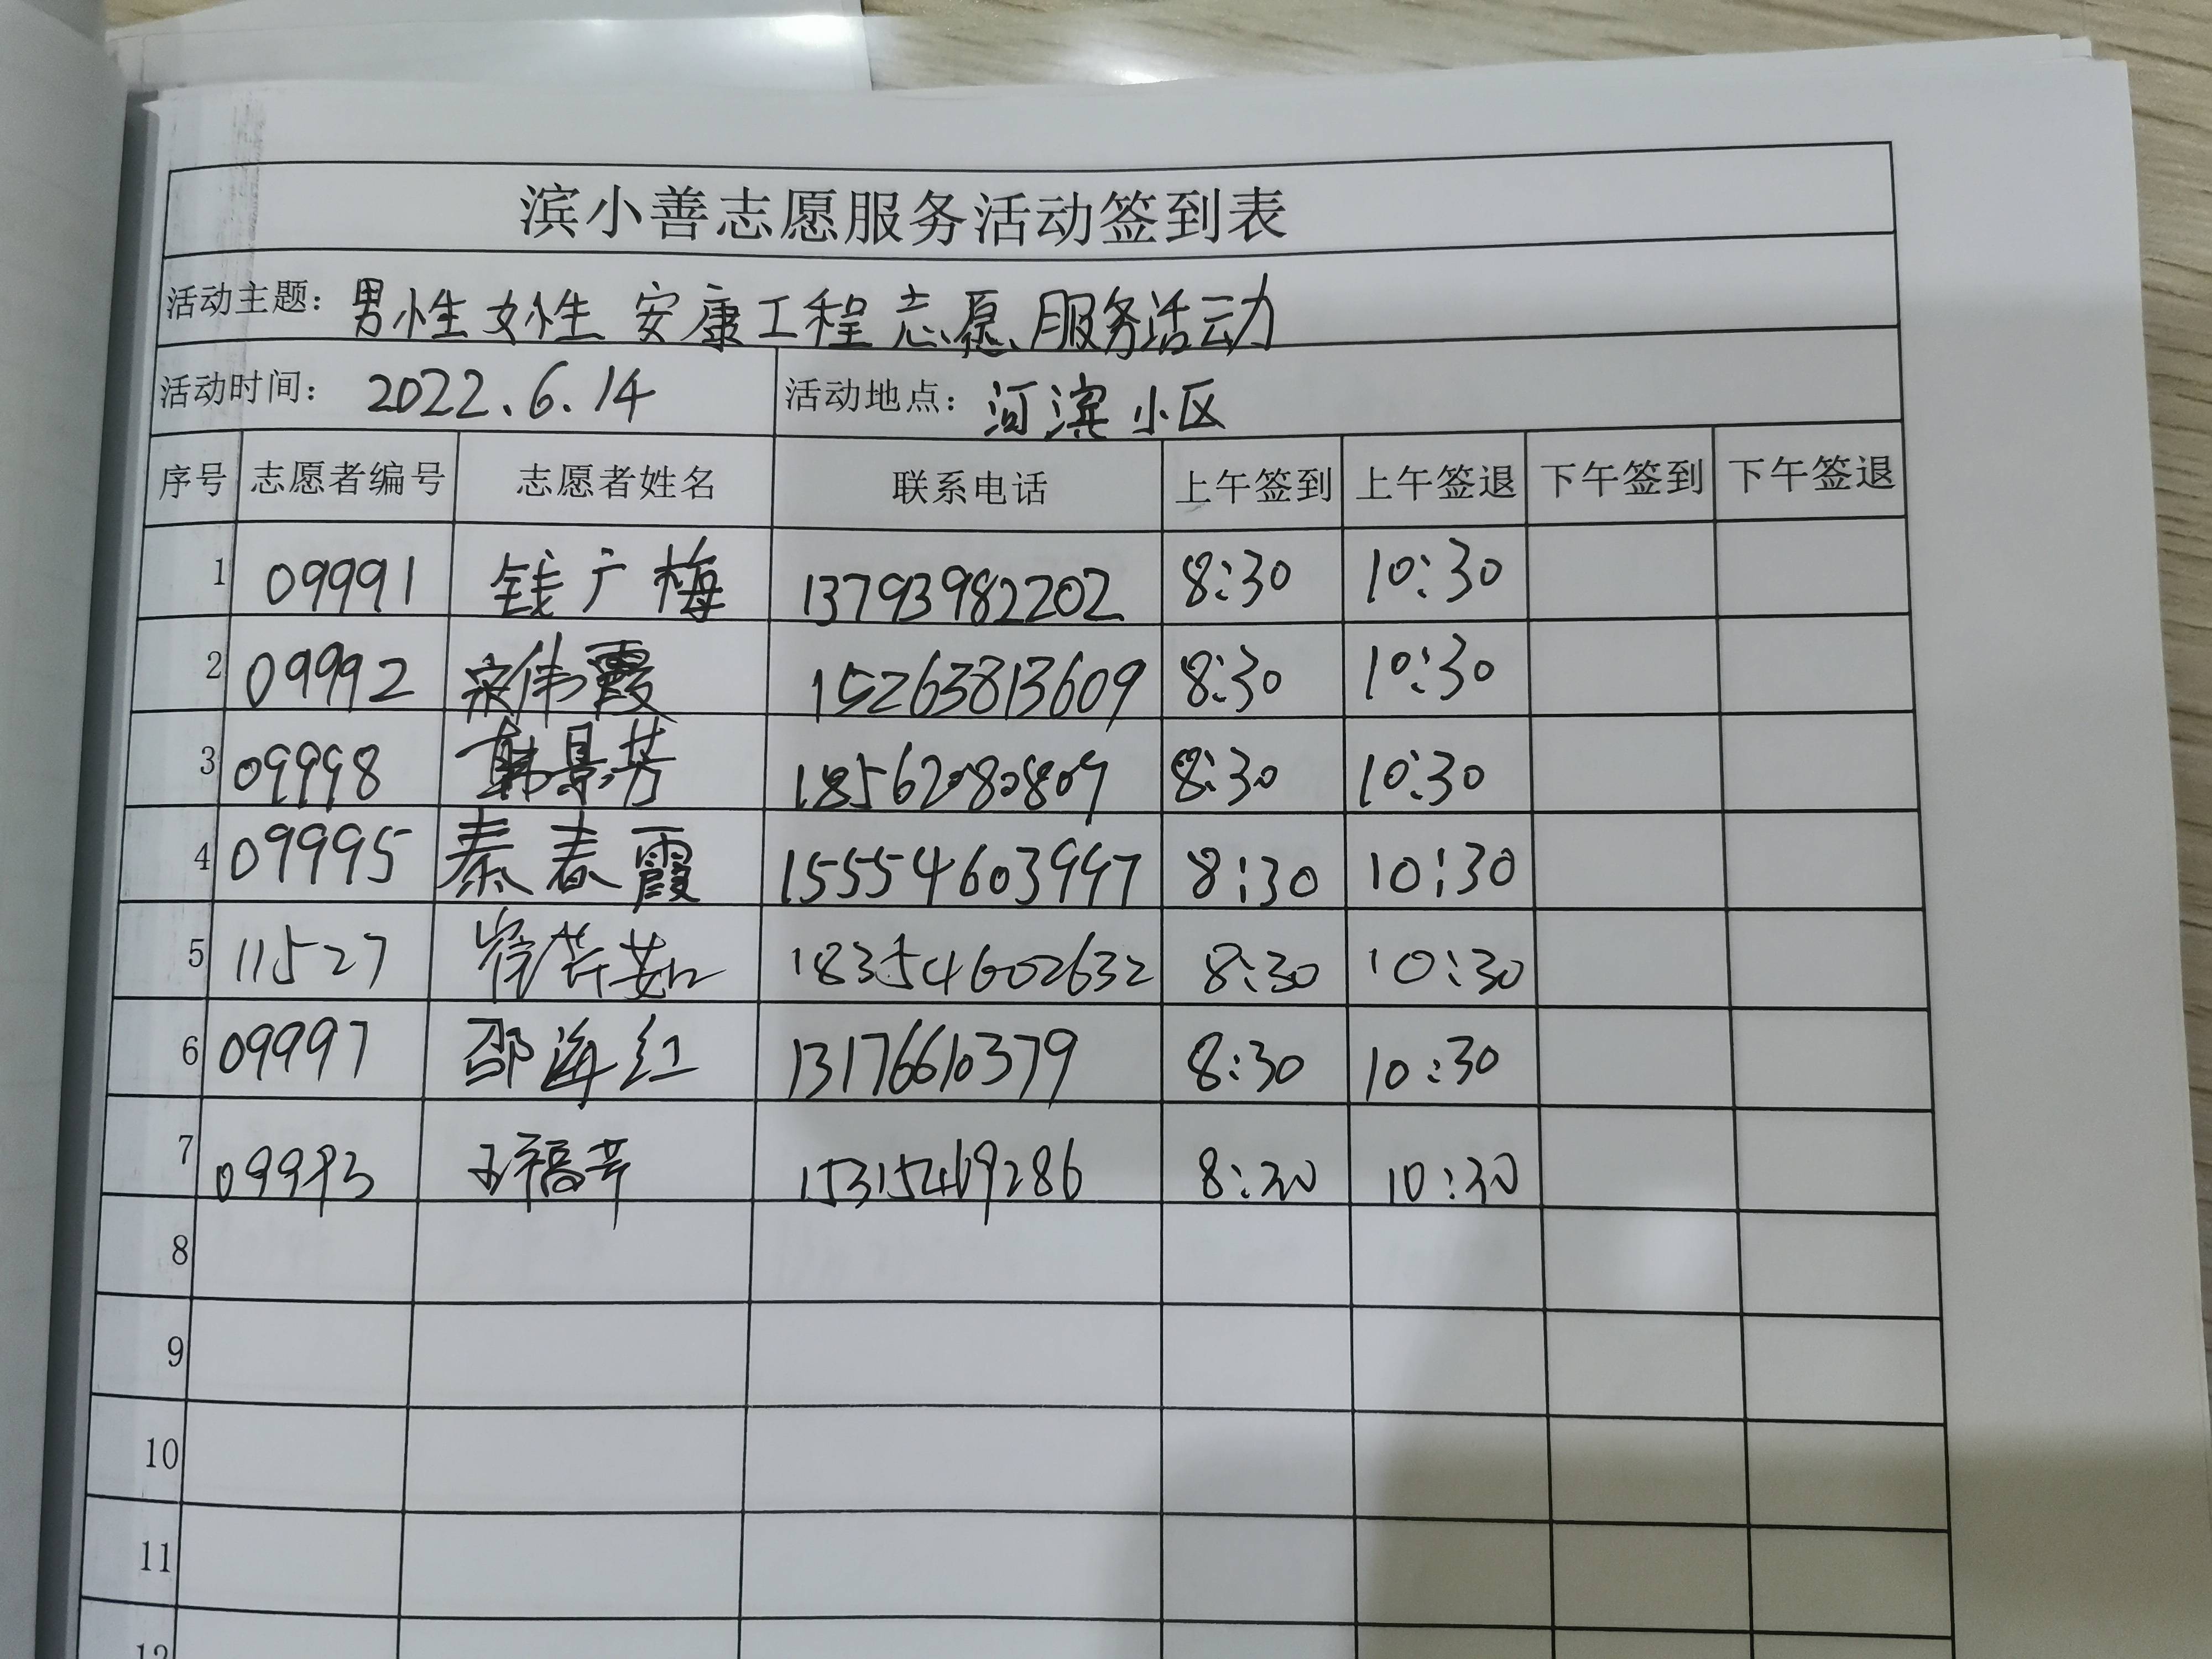 滨小善志愿服务活动签到表
活动主题：男性女性安康工程志愿服务活动
活动时间：2022.6.14 活动地点：河滨小区
序号 志愿者编号 志愿者姓名 联系电话 上午签到 上午签退 下午签到 下午签退
1 09991 钱广梅 13793982202 8:30 10:30
2 09992 宋伟霞 15263813609 8:30 10:30
3 09998 韩景芳 18562080809 8:30 10:30
4 09995 秦春霞 15554603997 8:30 10:30
5 11527 18354602632 8:30 10:30
6 09997 邵海红 13176610379 8:30 10:30
7 09993 15315469286 8:30 10:30
8
9
10
11
12